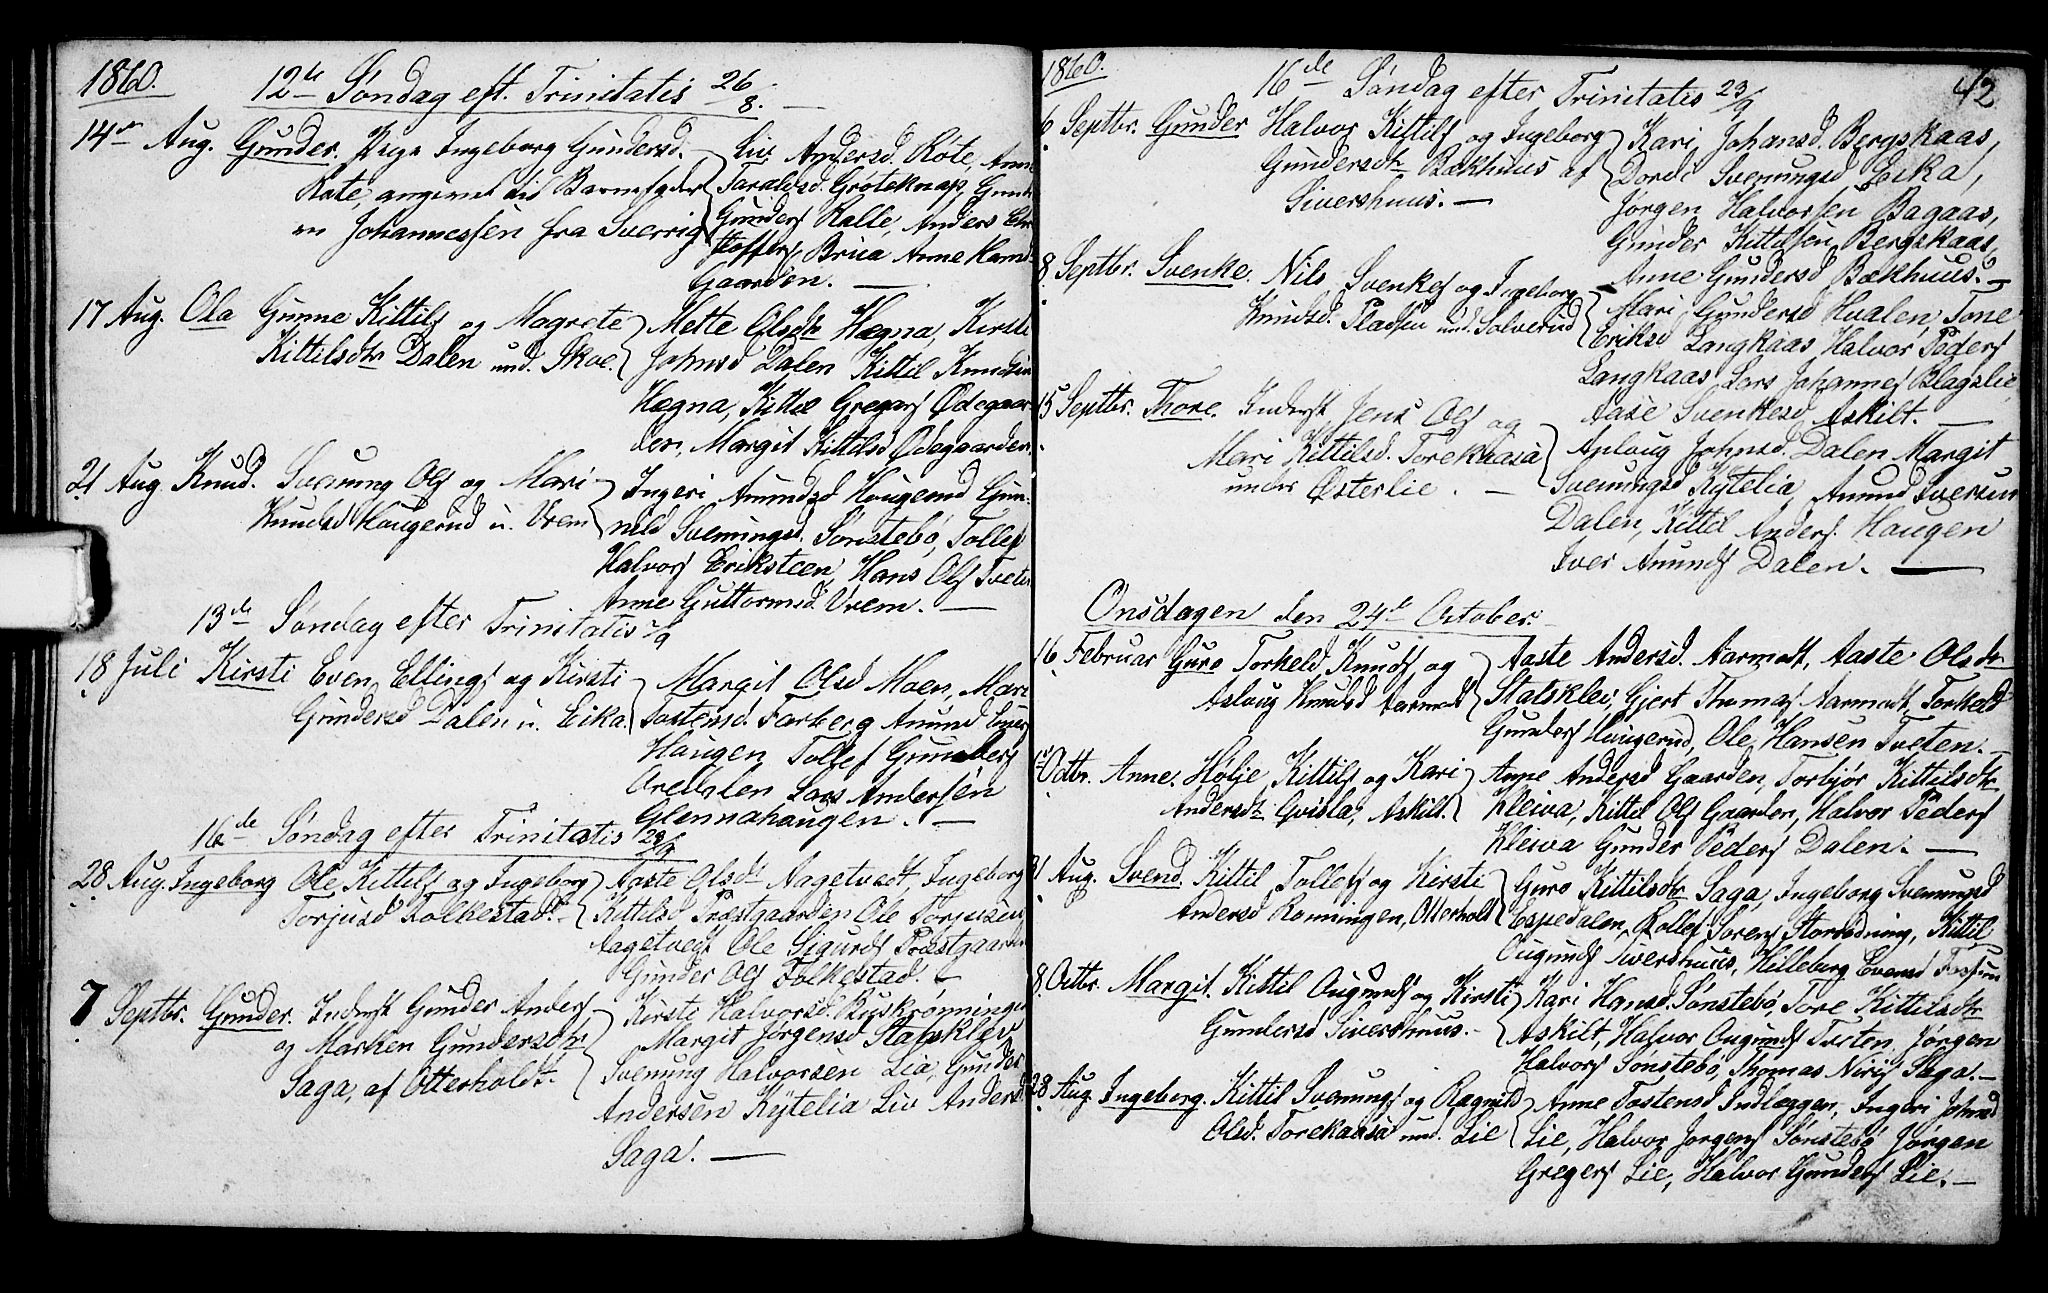 1860.
12te Søndag eft. Trinitatis 26/8.
14de Aug. Gunder. Pige Ingeborg Gundersd.
Rote, angivet til Barnefader
en Johannessen fra Sverrig
Liv Andersd. Rote, Anne
Taraldsd. Grøteknap, Gunder
Gunders Kalle, Anders
Brua Anne
Gaarden.
17 Aug. Ola Gunne Kittils og Magrete
Kittilsdtr Dalen und. Skoe.
Mette Olsdtr Hægna, Kirsti
Johnsd Dalen Kittil Knudsen
Hægna, Kittil Gregers Ødegaar
den, Margit Kittilsd Ødegaarden
21 Aug Knud. Svenung Ols og Mari
Knudsd Haugerud u. Vrem
Ingeri Amundsd Haugerud Gun-
nild Svenungsd. Sønstebø, Tollef
Halvors Eriksteen, Hans Ols Tveten
Anne Guttormsd. Vrem. —
13de Søndag efter Trinitatis 2/9
18 Juli Kirsti Even Ellings og Kirsti
Gundersd Dalen u. Eika.
Margit Olsd Moen, Mari
Tostensd. Farberg Amund
Haugen Tollef Gunders
Ordalen Lars Andersen
Glennahaugen. —
16de Søndag efter Trinitatis 23/9
28 Aug. Ingeborg Ole Kittils og Ingeborg
Torjusd Folkestad. —
Aaste Olsdtr Aagetvedt, Ingeborg
Kittilsd Præstgaarden Ole Torjusen
Aagetvedt Ole Sigurds Præstgaarden
Gunder Ols Folkestad. —
7 Septbr. Gunder. Inderst Gunder Anders
og Marken Gundersdtr
Saga, af Otterholdt.
Kirsti Halvorsd. Buskrønningen
Margit Jørgensd Statsklev
Svenung Halvorsen Lia, Gunder
Andersen Kytelia Liv Andersd
Saga. —
1860.
42
16de Søndag efter Trinitatis 23/9
6 Septbr. Gunder Halvor Kittils og Ingeborg
Gundersdtr Bækhuus af
Siverhuus. —
Kari Johansd. Bergskaas,
Dordi Svenungsd Eika,
Jørgen Halvorsen Bagaas,
Gunder Kittilsen Bergskaas,
Anne Gundersd Bækhuus. —
8 Septbr. Svenke. Nils Svenkes og Ingeborg
Knudsd. Pladsen und. Solverud
Mari Gundersd Hvalen Tone
Eriksd Langkaas Halvor Peders
Langkaas Lars Johannes Blagslie
Aase Svenkesd Askilt. —
15 Septbr. Thore. Inderst Jens Ols og
Mari Kittilsd. Torekaasa
under Østerlie. —
Asloug Johnsd. Dalen Margit
Svenungsd Kytelia Amund Iversen
Dalen, Kittil Anders. Haugen
Iver Amunds Dalen. —
Onsdagen den 24de October.
16 Februar Guro Torkeld Knuds og
Aslaug Knudsd Aarmodt
Aaste Andersd. Aarmodt, Aaste Olsdtr
Statsklev, Gjert Thomas Aarmodt, Torkeld
Gunders Haugerud, Ole Hansen Tveten. —
Octbr. Anne. Hølje Kittils og Kari
Andersdtr Qvisla, Askilt.
Anne Andersd Gaarden, Torbjør Kittilsdtr
Kleiva, Kittil Ols Gaarden, Halvor Peders
Kleiva Gunder Peders Dalen. —
31 Aug. Svend. Kittil Tollefs og Kirsti
Andersd Rønningen, Otterholdt
Guro Kittilsdtr Saga, Ingeborg Svenungsd
Espedalen, Rollef Sørens Storrødning, Kittil
Ougunds Siverhuus, Hilleborg Evensd Fossum
8 Octbr. Margit. Kittil Ougunds og Kirsti
Gundersd Siverhuus. —
Kari Hansd. Sønstebø, Tore Kittilsdtr
Askilt, Halvor Ougunds Tveten, Jørgen
Halvors Sønstebø, Thomas Niris Saga. —
28 Aug. Ingeborg. Kittil Svenungs og Ragnild
Olsd. Torekaasa und. Lie
Anne Tostensd Indlæggen, Ingeri Johnsd
Lie, Halvor Jørgens Sønstebø Jørgen
Gregers Lie, Halvor Gunders Lie. —